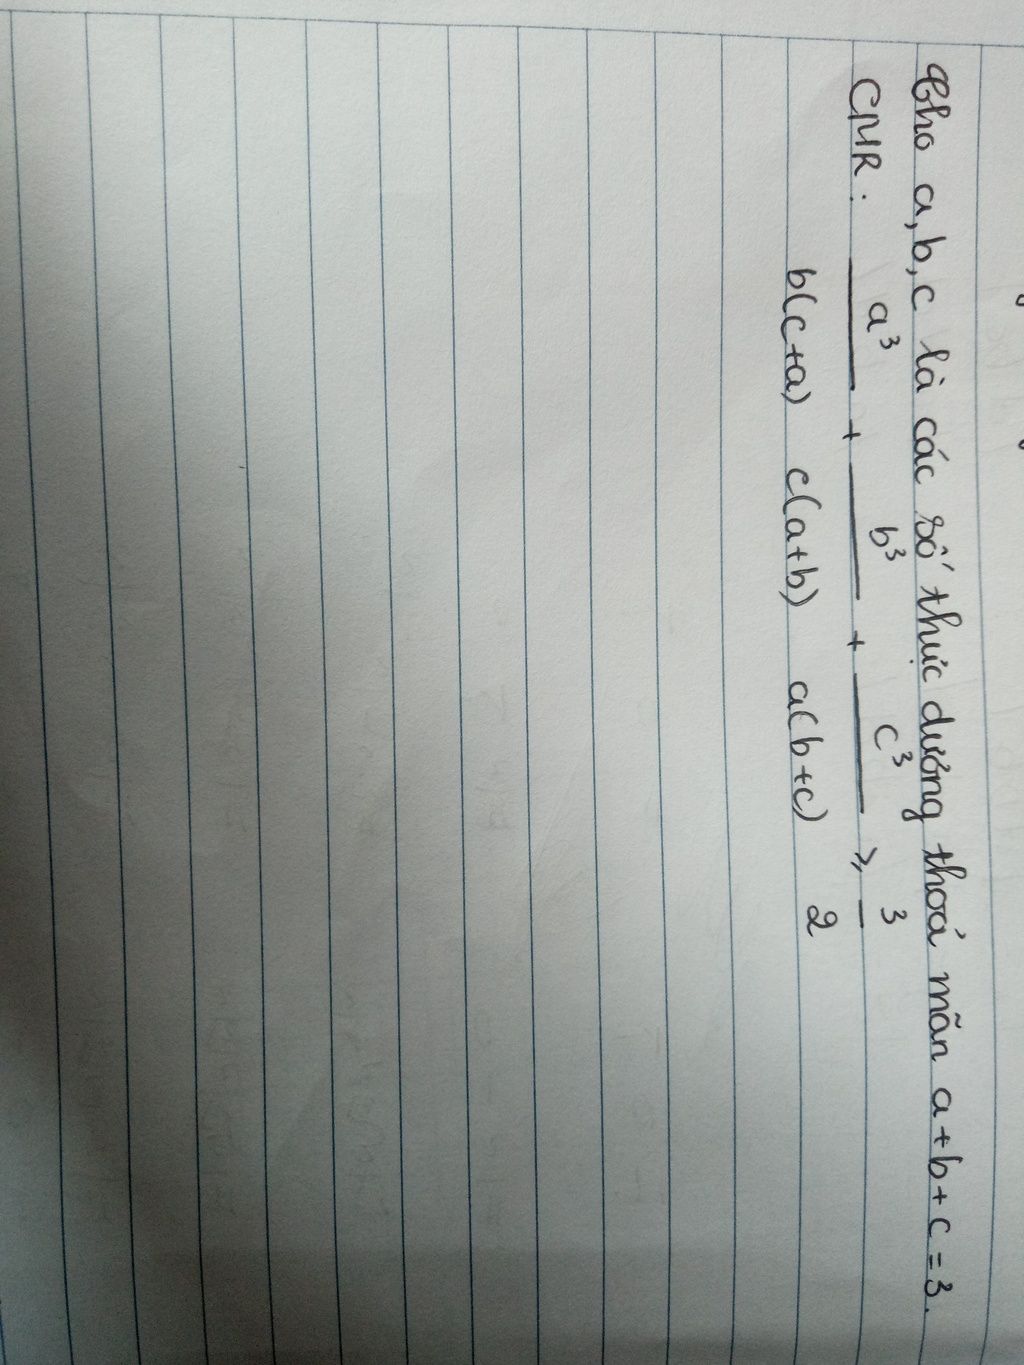 Cho a, b, c là các số thực dương thoả mãn a + b + c = 3.
CMR: a³/b(c+a) + b³/c(a+b) + c³/a(b+c) ⩾ 3/2